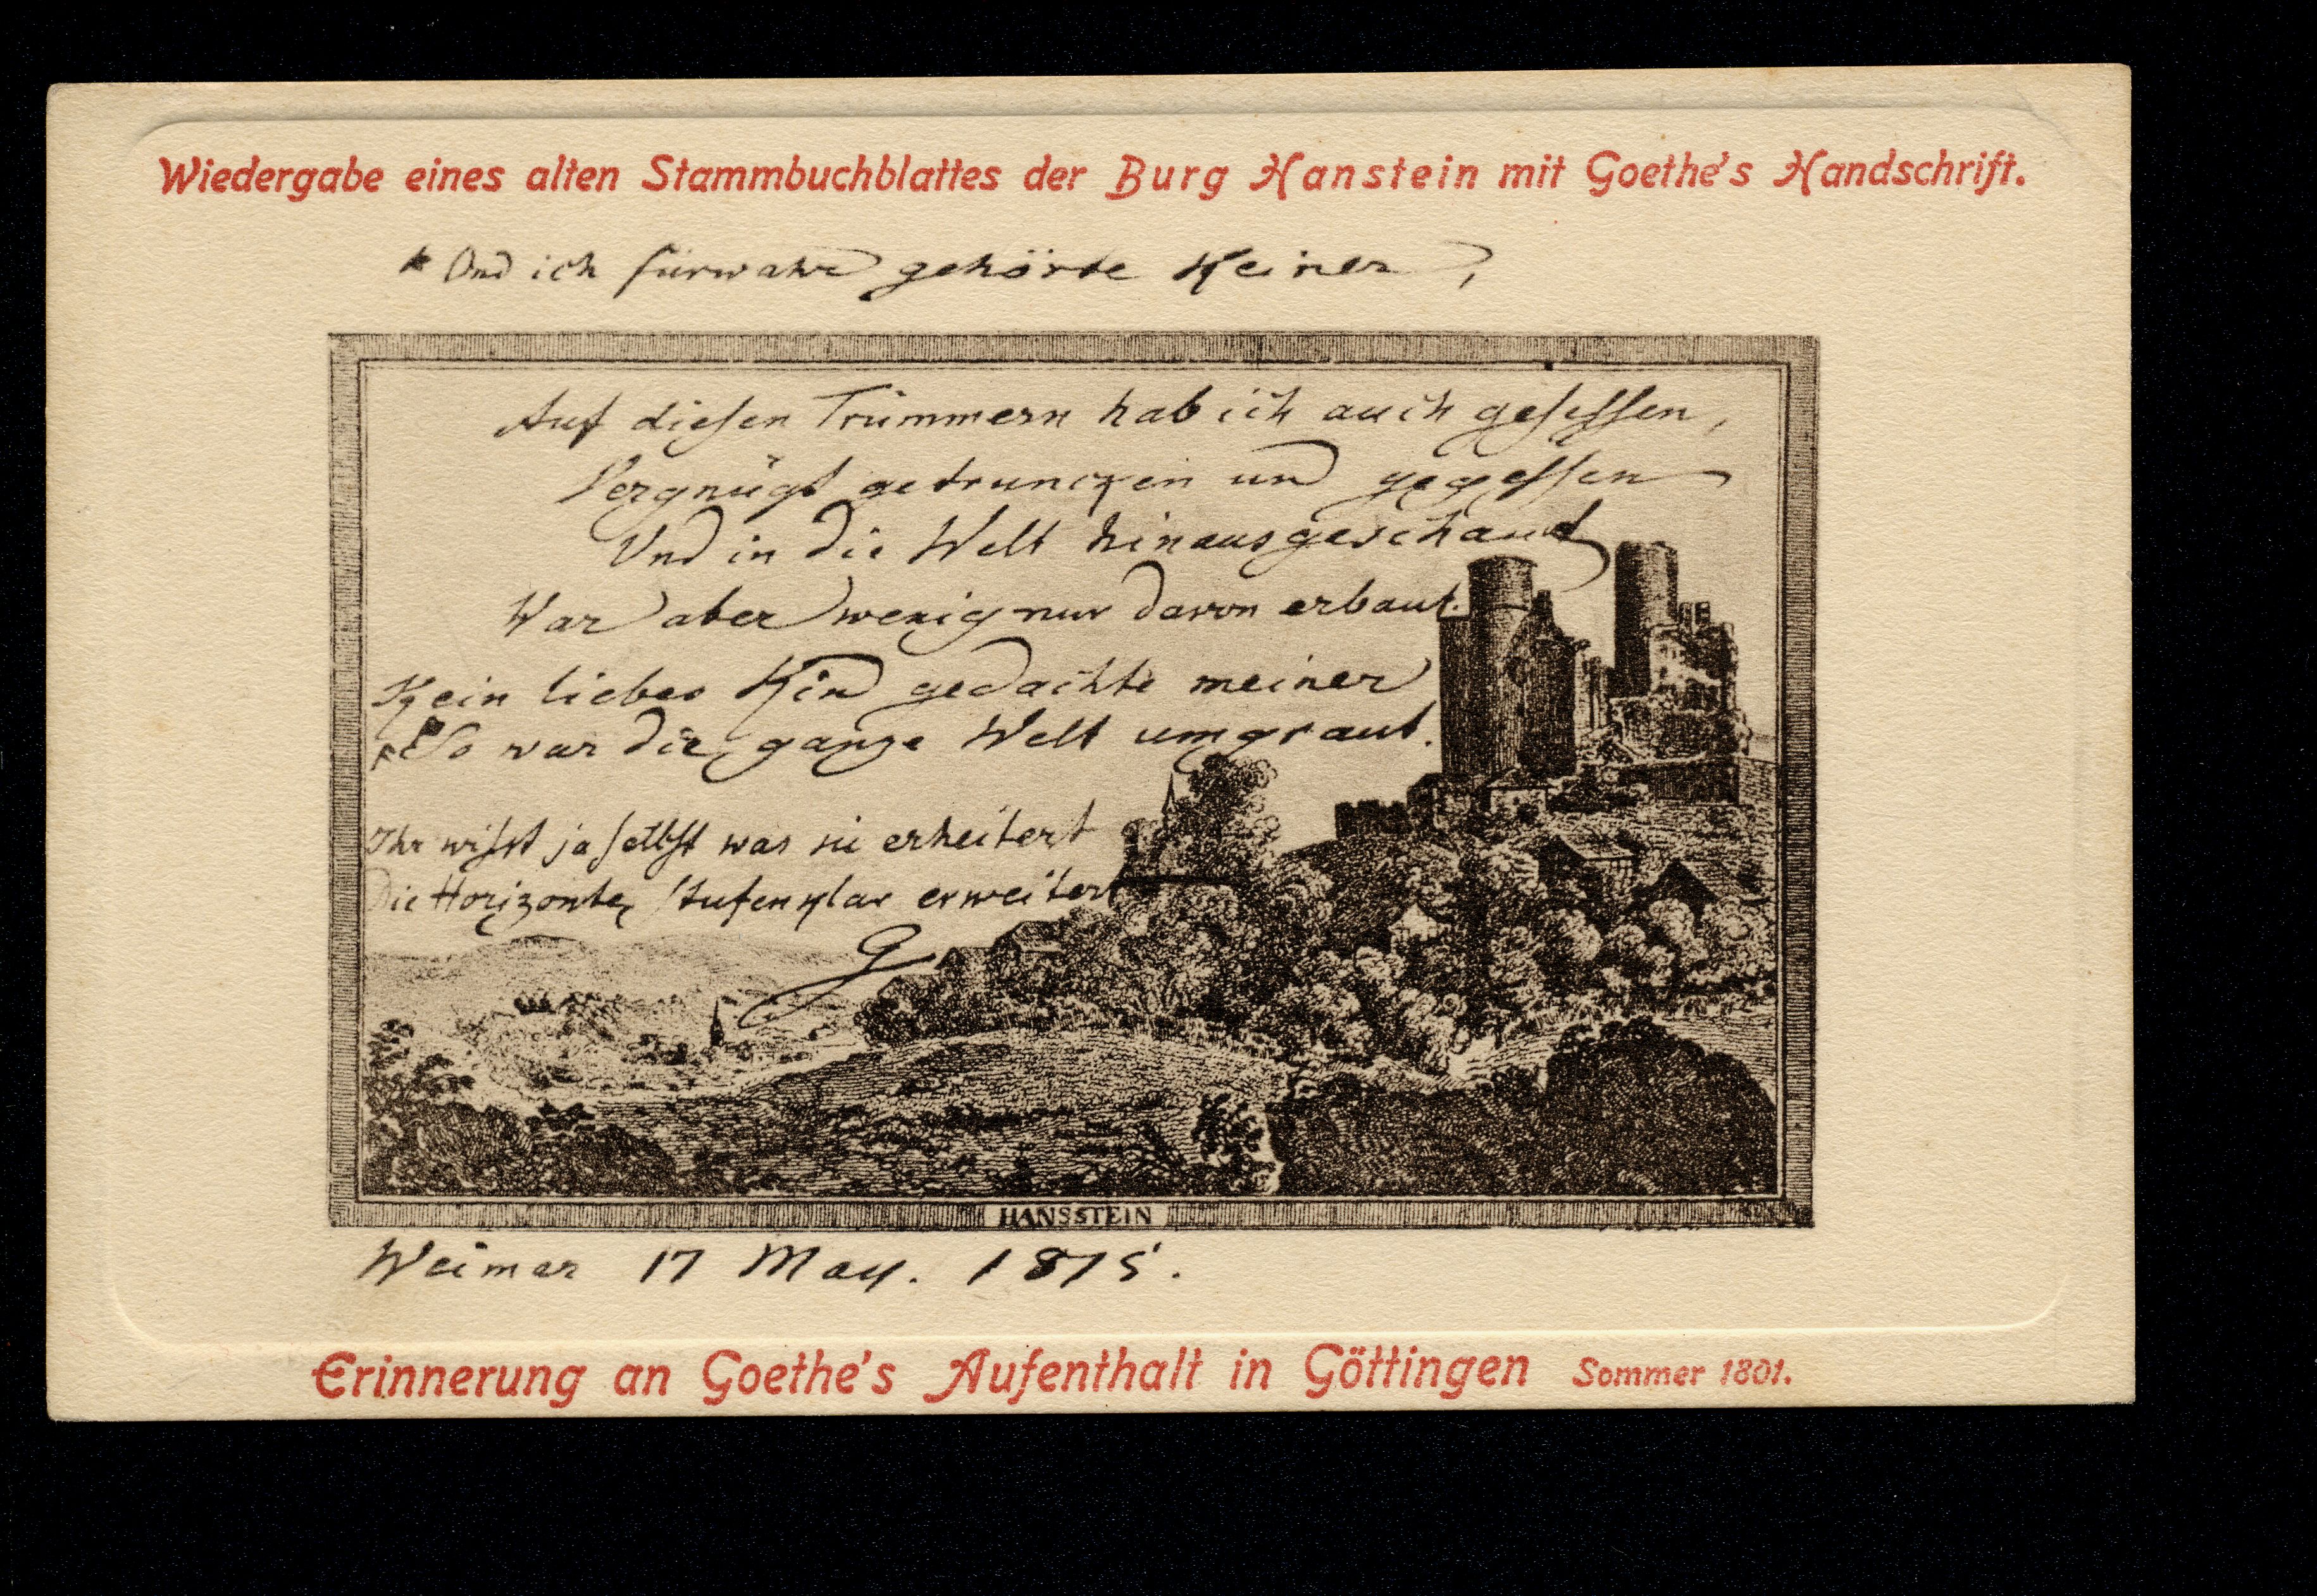 Wiedergabe eines alten Stammbuchblattes der Burg Hanstein mit Goethe's Handschrift.
* Und ich fürwahr gehörte Keiner,
Auf diesen Trümmern hab ich auch gesessen,
Vergnügt getruncken und gegessen
Und in die Welt hinausgeschaut
War aber wenig nur davon erbaut.
Kein liebes Kind gedachte meiner
* So war die ganze Welt umgraut.
Ihr wisst ja selbst was sie erheitert
Die Horizonte, stufenklar erweitert
G
HANSSTEIN
Weimar 17 May. 1815.
Erinnerung an Goethe's Aufenthalt in Göttingen Sommer 1801.